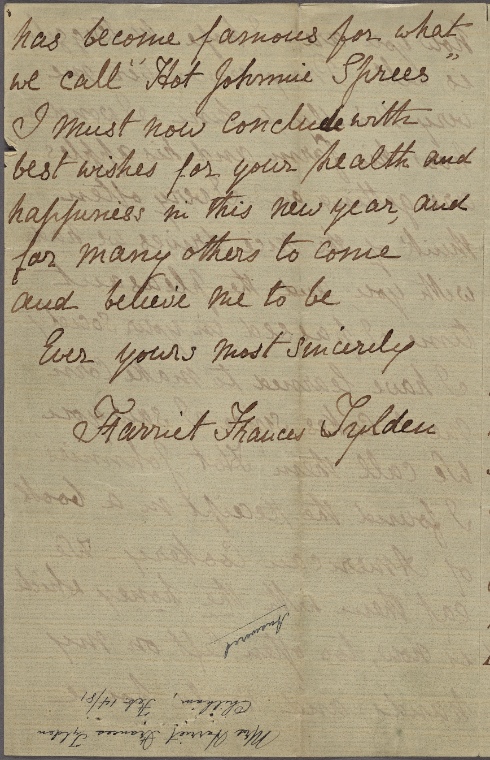 has become famous for what
we call "Hot Johnnie Sprees"
I must now conclude with
best wishes for your health and
happiness in this new year, and
for many others to come
and believe me to be
Ever yours most sincerely
Harriet Frances Tylden
Answered
Mrs Harriet Frances Tylden
Chilham, Feb 14/81